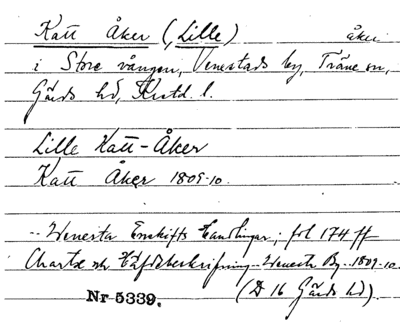 Katt Åker (, Lille) åker
i Store vången, Venestads by, Träne sn,
Gärds hd, Kristd. l.
Lille Katt-Åker
Katt Åker 1809-10.
-- Wenesta Enskifts Handlingar; fol 174 ff
Charta och Häfdebeskrifning Wenesta By. 1809-10.
Nr 5339. (D 16 Gärds hd)